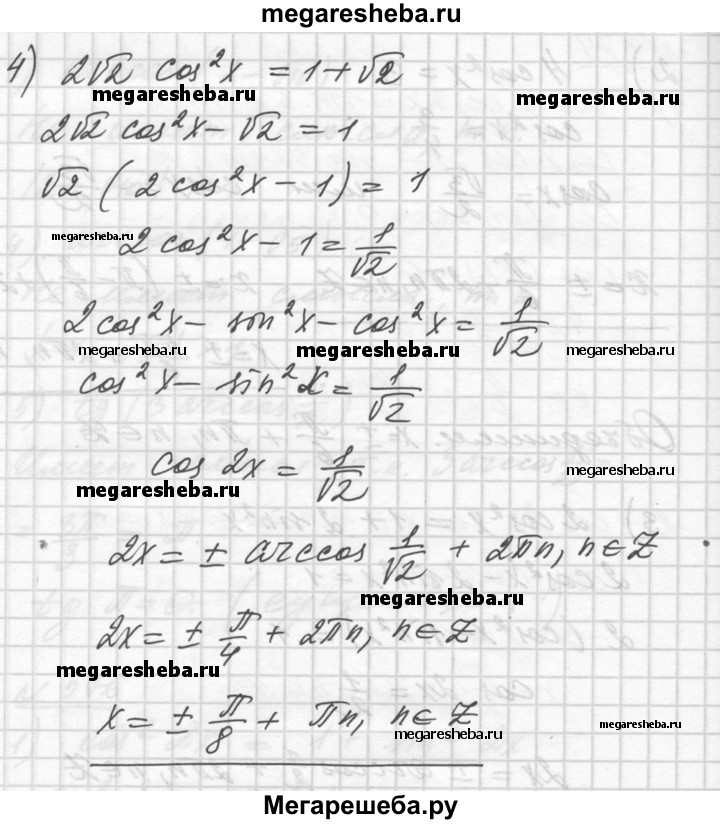 megaresheba.ru
4) 2√2 cos²x = 1+√2
megaresheba.ru megaresheba.ru
2√2 cos²x - √2 = 1
√2 (2 cos²x - 1) = 1
megaresheba.ru
2 cos²x - 1 = 1/√2
2 cos²x - sin²x - cos²x = 1/√2
megaresheba.ru megaresheba.ru megaresheba.ru
cos²x - sin²x = 1/√2
cos 2x = 1/√2
megaresheba.ru
megaresheba.ru
2x = ± arccos 1/√2 + 2πn, n∈Z
megaresheba.ru
2x = ± π/4 + 2πn, n∈Z
megaresheba.ru
x = ± π/8 + πn, n∈Z
megaresheba.ru megaresheba.ru
Мегарешеба.ру